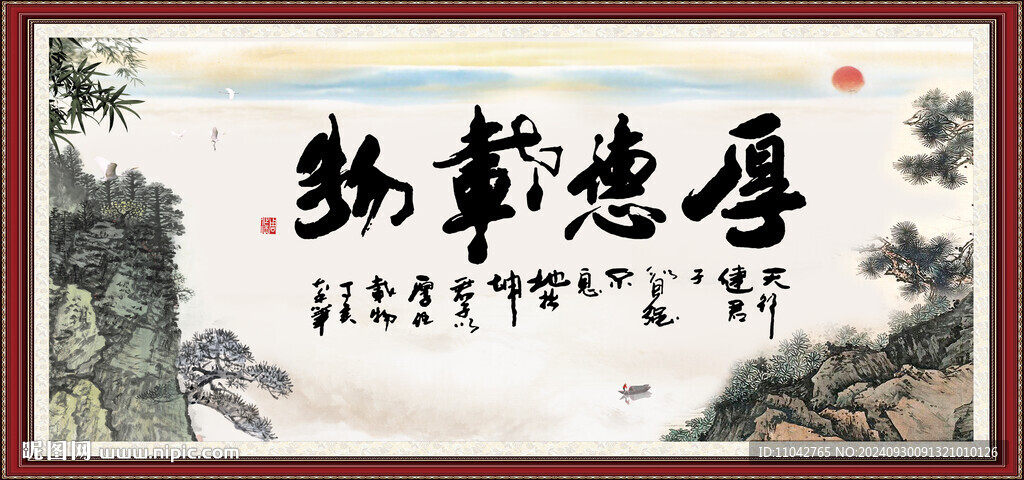 厚德載物
天行
健君
子
以自强
不
息
地势
坤
君子以
厚德
載物
丁亥
昵图网 www.nipic.com
ID:11042765 NO:20240930091321010126